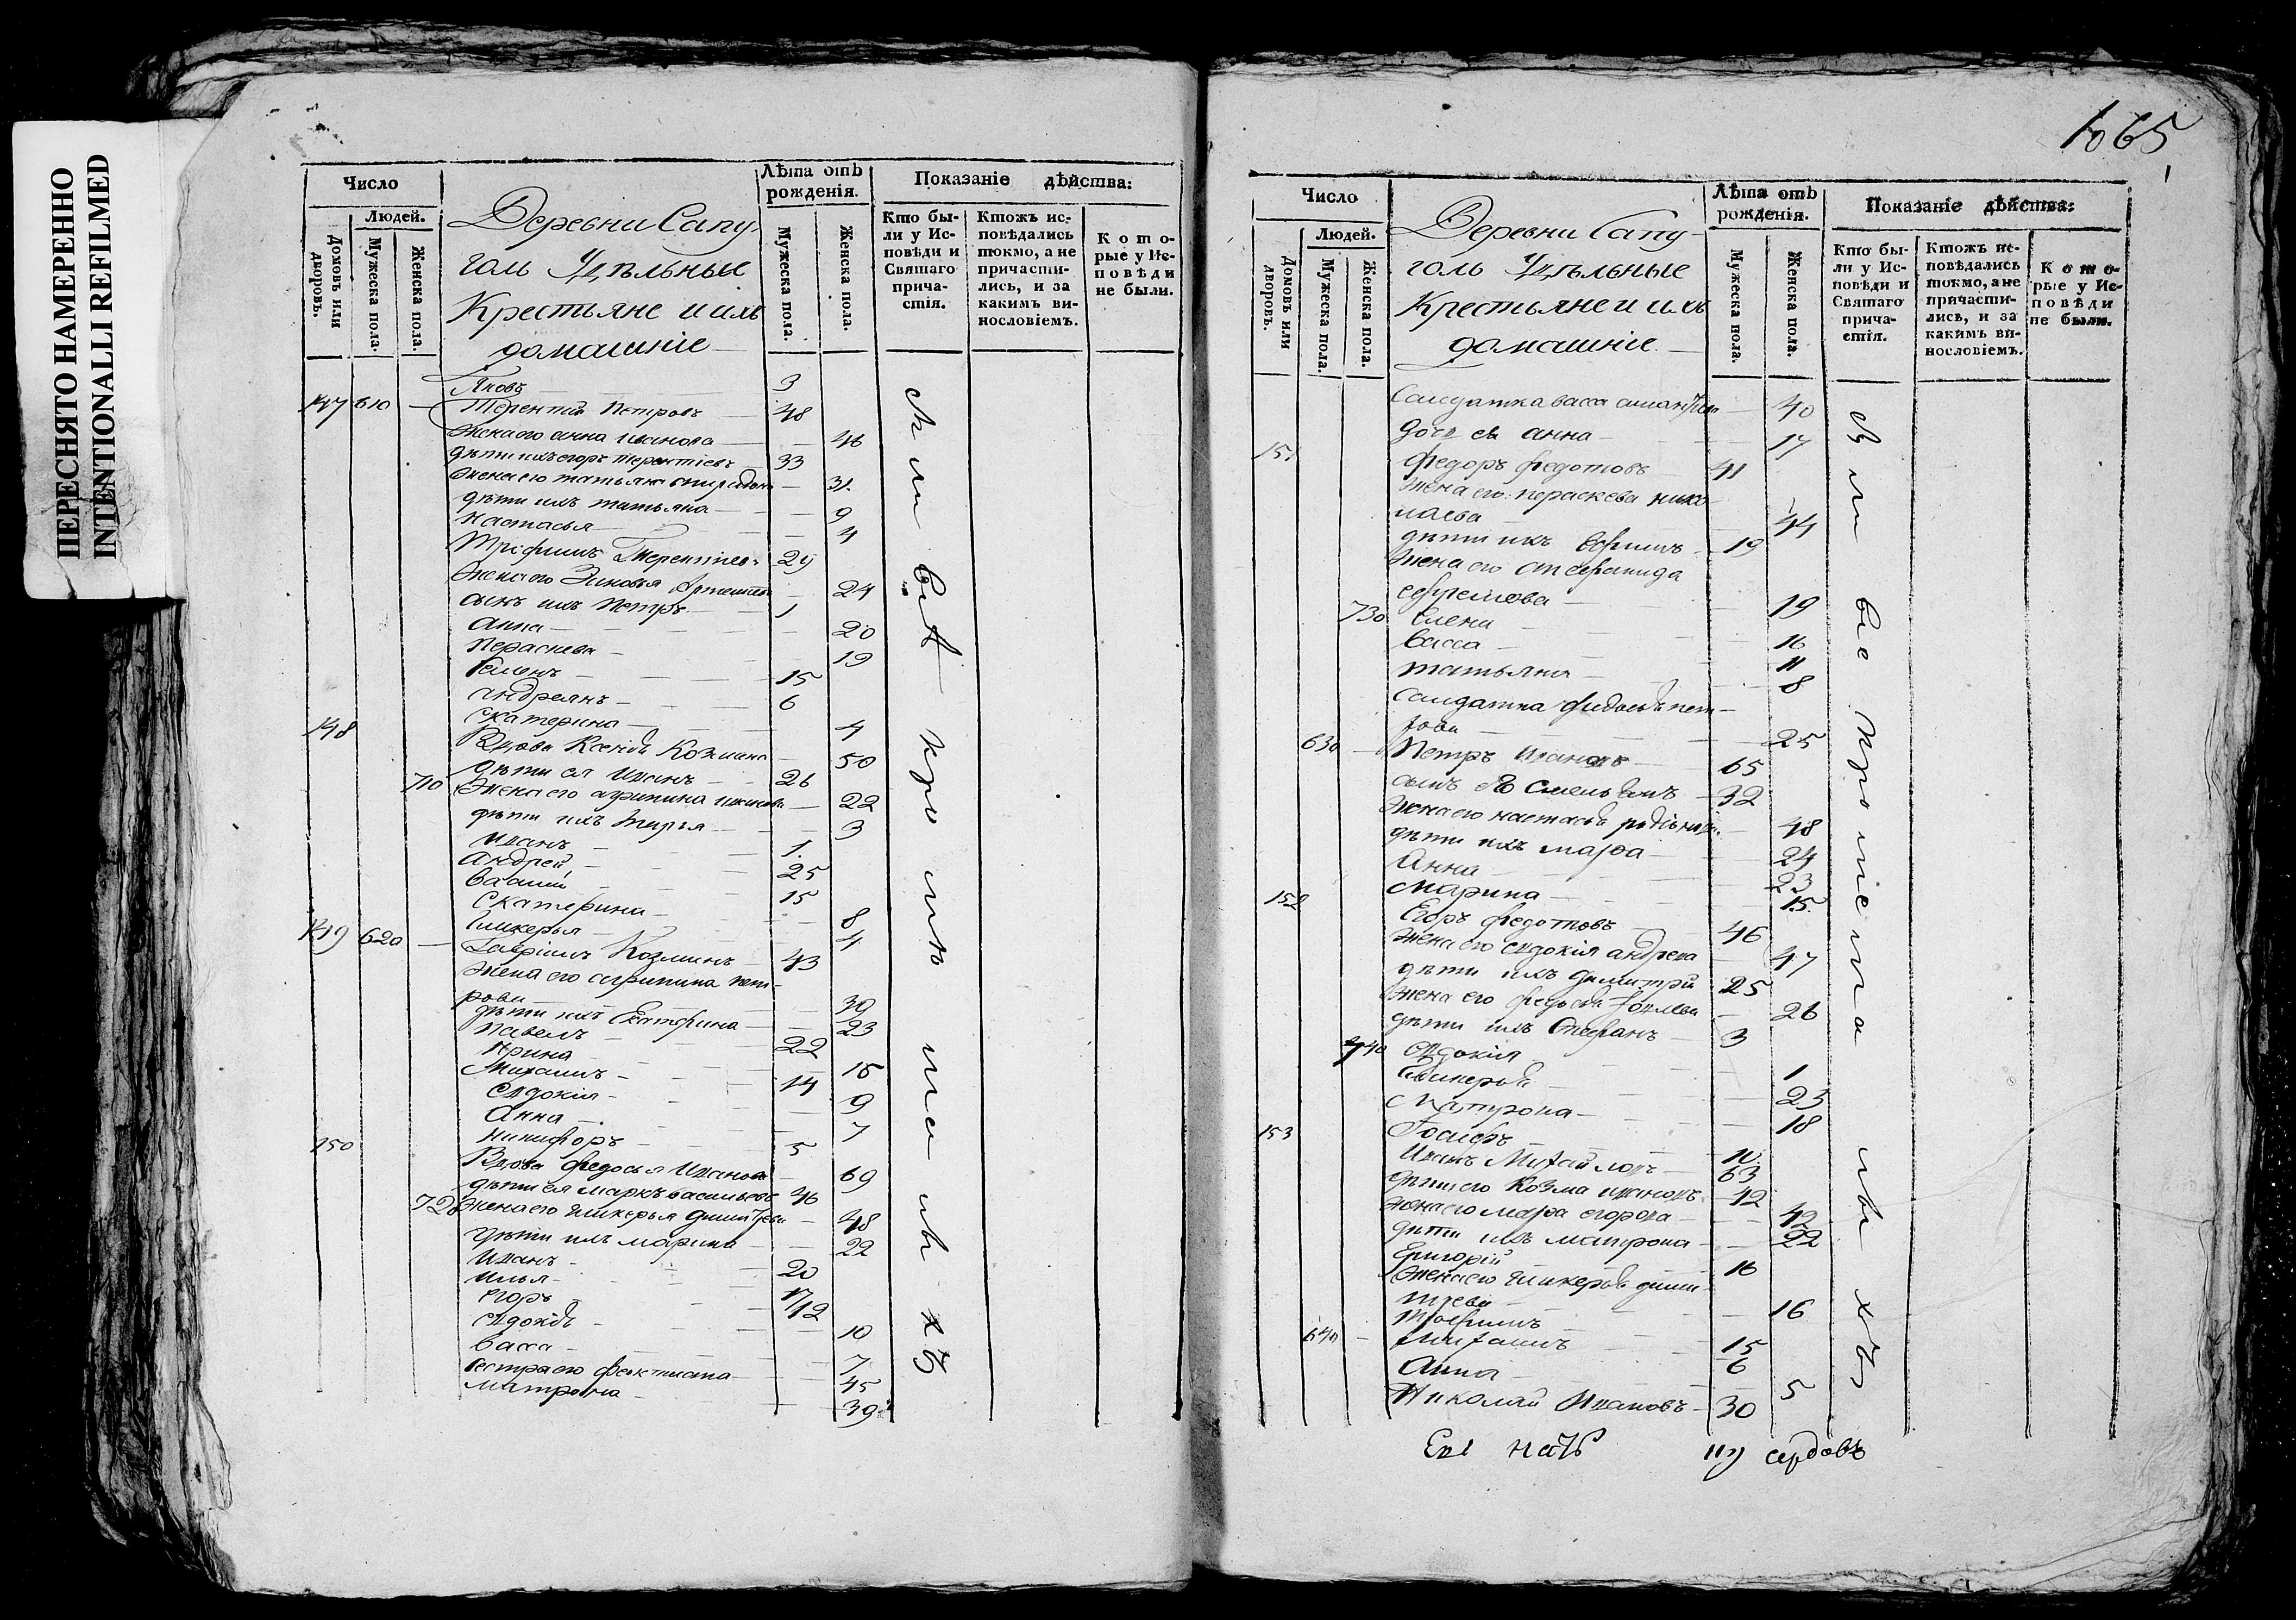 ПЕРЕСНЯТО НАМЕРЕННО
INTENTIONALLI REFILMED
Число
Людей.
Домовъ или дворовъ.
Мужеска пола.
Женска пола.
Деревни Сапу-
голь Удѣльные
Крестьяне и ихъ
домашніе
Лѣта отъ
рожденія.
Мужеска пола.
Женска пола.
Показаніе дѣйства:
Кто бы-
ли у Ис-
повѣди и
Святаго
прича-
стія.
Ктожъ ис-
повѣдались
токмо, а не
причасти-
лись, и за
какимъ ви-
нословіемъ.
Кото-
рые у Ис-
повѣди
не были.
Яковъ 3
147 610 Терентий Петровъ 48
Жена его анна иванова 46
дѣти ихъ егоръ терентіевъ 33
Жена его татьяна 31
дѣти ихъ татьяна 9
настасья 4
Трифимъ Терентіевъ 29
Жена его Зиновья 24
сынъ ихъ Петръ 1
анна 20
Пераскева 19
Семенъ 15
андреянъ 6
Екатерина 4
148 Вдова Ксенія Козмина 50
дѣти ея Иванъ 26
710 Жена его агрипина иванова 22
дѣти ихъ Марья 3
иванъ 1
андрей 25
василий 15
Екатерина 8
Гликерья 4
149 620 Гавріилъ Козминъ 43
Жена его агрипина пет-
рова 39
дѣти ихъ Екатерина 23
Павелъ 22
Ирина 16
Михаилъ 14
Евдокія 9
Анна 7
Никифоръ 5
150 Вдова федосья Иванова 69
дѣти ея маркъ васильевъ 46
720 Жена его гликерья 48
дѣти ихъ марина 22
Иванъ 20
Илья 17
егоръ 12
евдокія 10
васса 7
сестра его феоктиста 45
матрона 39
1065
Число
Людей.
Домовъ или дворовъ.
Мужеска пола.
Женска пола.
Деревни Сапу-
голь Удѣльные
Крестьяне и ихъ
домашніе
Лѣта отъ
рожденія.
Мужеска пола.
Женска пола.
Показаніе дѣйства:
Кто бы-
ли у Ис-
повѣди и
Святаго
прича-
стія.
Ктожъ ис-
повѣдались
токмо, а не
причасти-
лись, и за
какимъ ви-
нословіемъ.
Кото-
рые у Ис-
повѣди
не были.
Салдатка васса 40
дочь ея анна 17
151 федоръ федотовъ 41
Жена его пераскева нико-
лаева 44
дѣти ихъ Ефимъ 19
Жена его степанида
ефремова 19
730 Елена 16
васса 11
татьяна 8
Салдатка федосья пет-
рова 25
630 Петръ Ивановъ 65
сынъ его Емельянъ 32
Жена его настасья 48
дѣти ихъ марфа 24
Анна 23
марина 15
152 Егоръ федотовъ 46
Жена его евдокія андреева 47
дѣти ихъ димитрій 25
Жена его федосья 26
дѣти ихъ Стефанъ 3
740 евдокія 1
Гликерья 23
Матрона 18
Іосифъ 10
153 Иванъ Михайловъ 63
дѣти его Козма ивановъ 42
Жена его марфа егорова 42
дѣти ихъ матрона 22
Григорій 16
Жена его гликерья дими-
трева 16
трофимъ 15
640 михаилъ 6
Анна 5
Николай Ивановъ 30